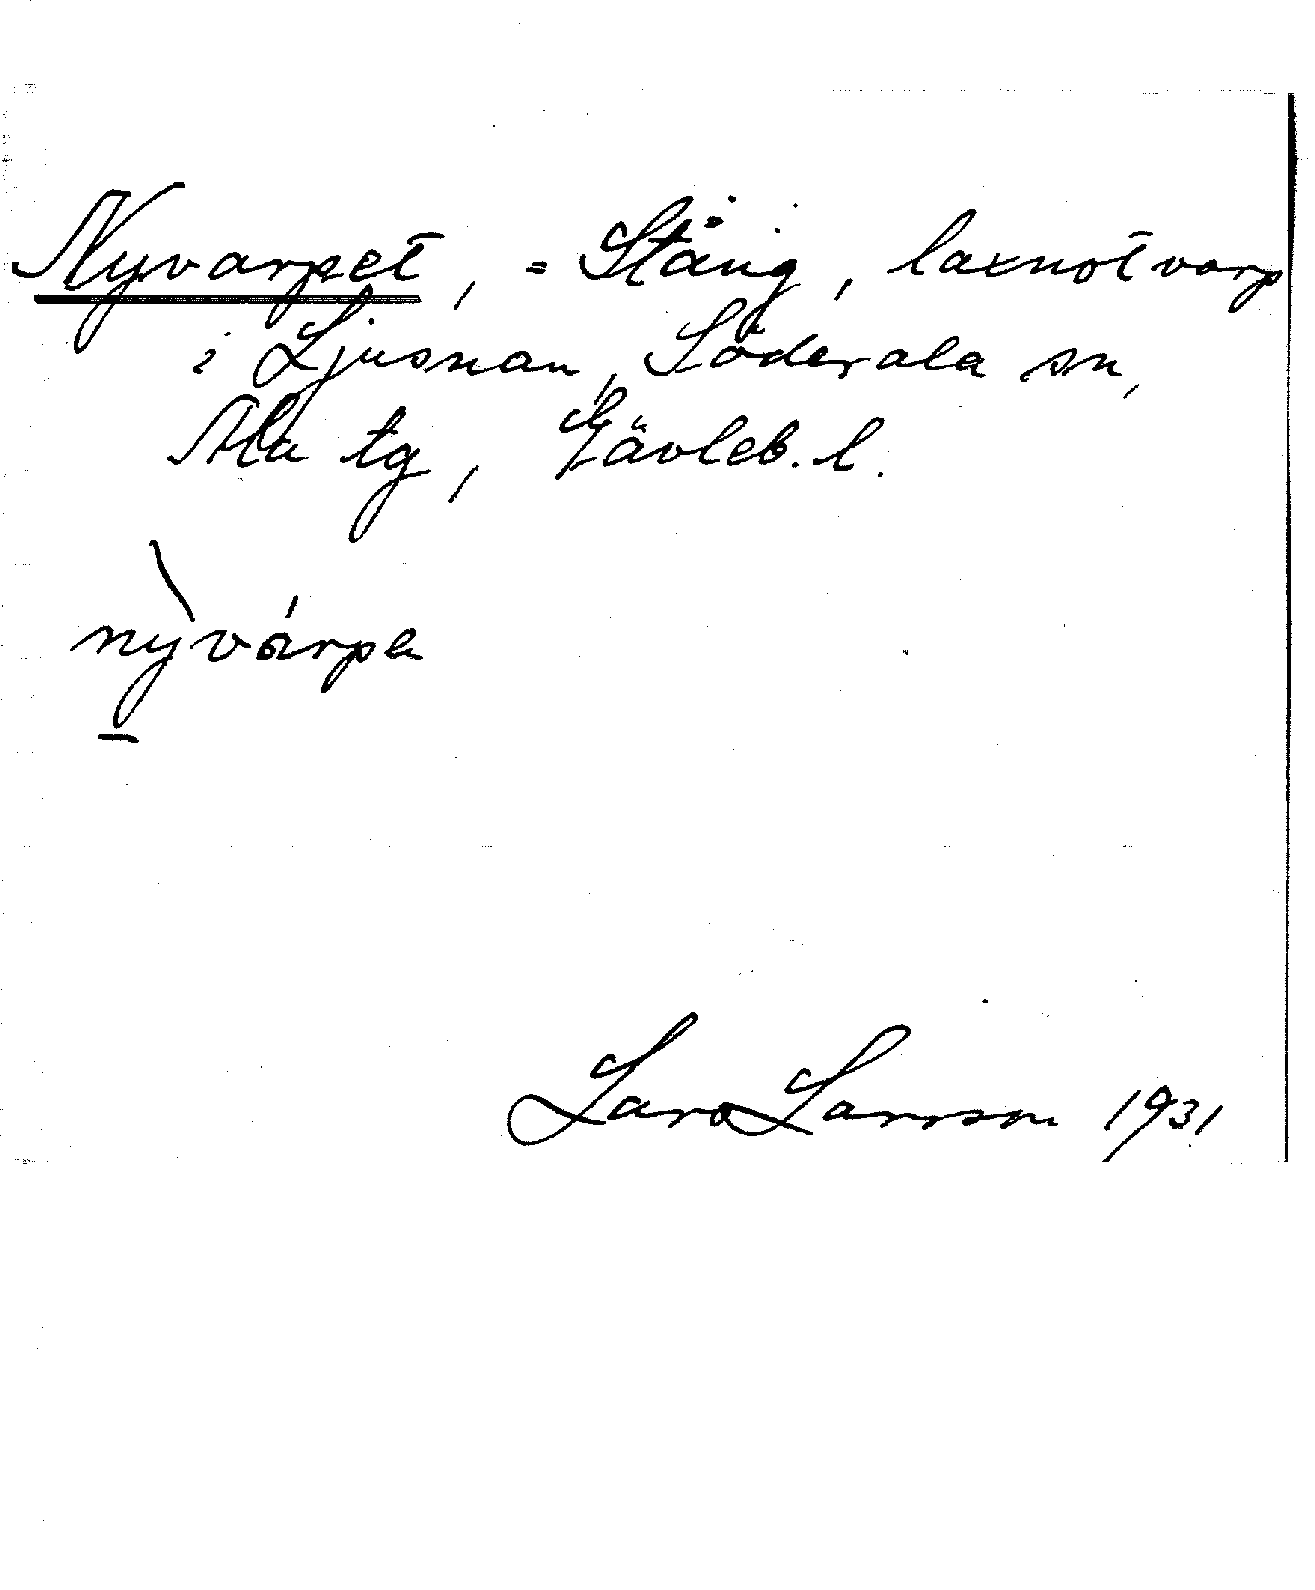 Nyvarpet, = Stäng, laxnotvarp
i Ljusnan, Söderala sn,
Ala tg, Gävleb. l.
nỳvárpa
Lars Larsson 1931